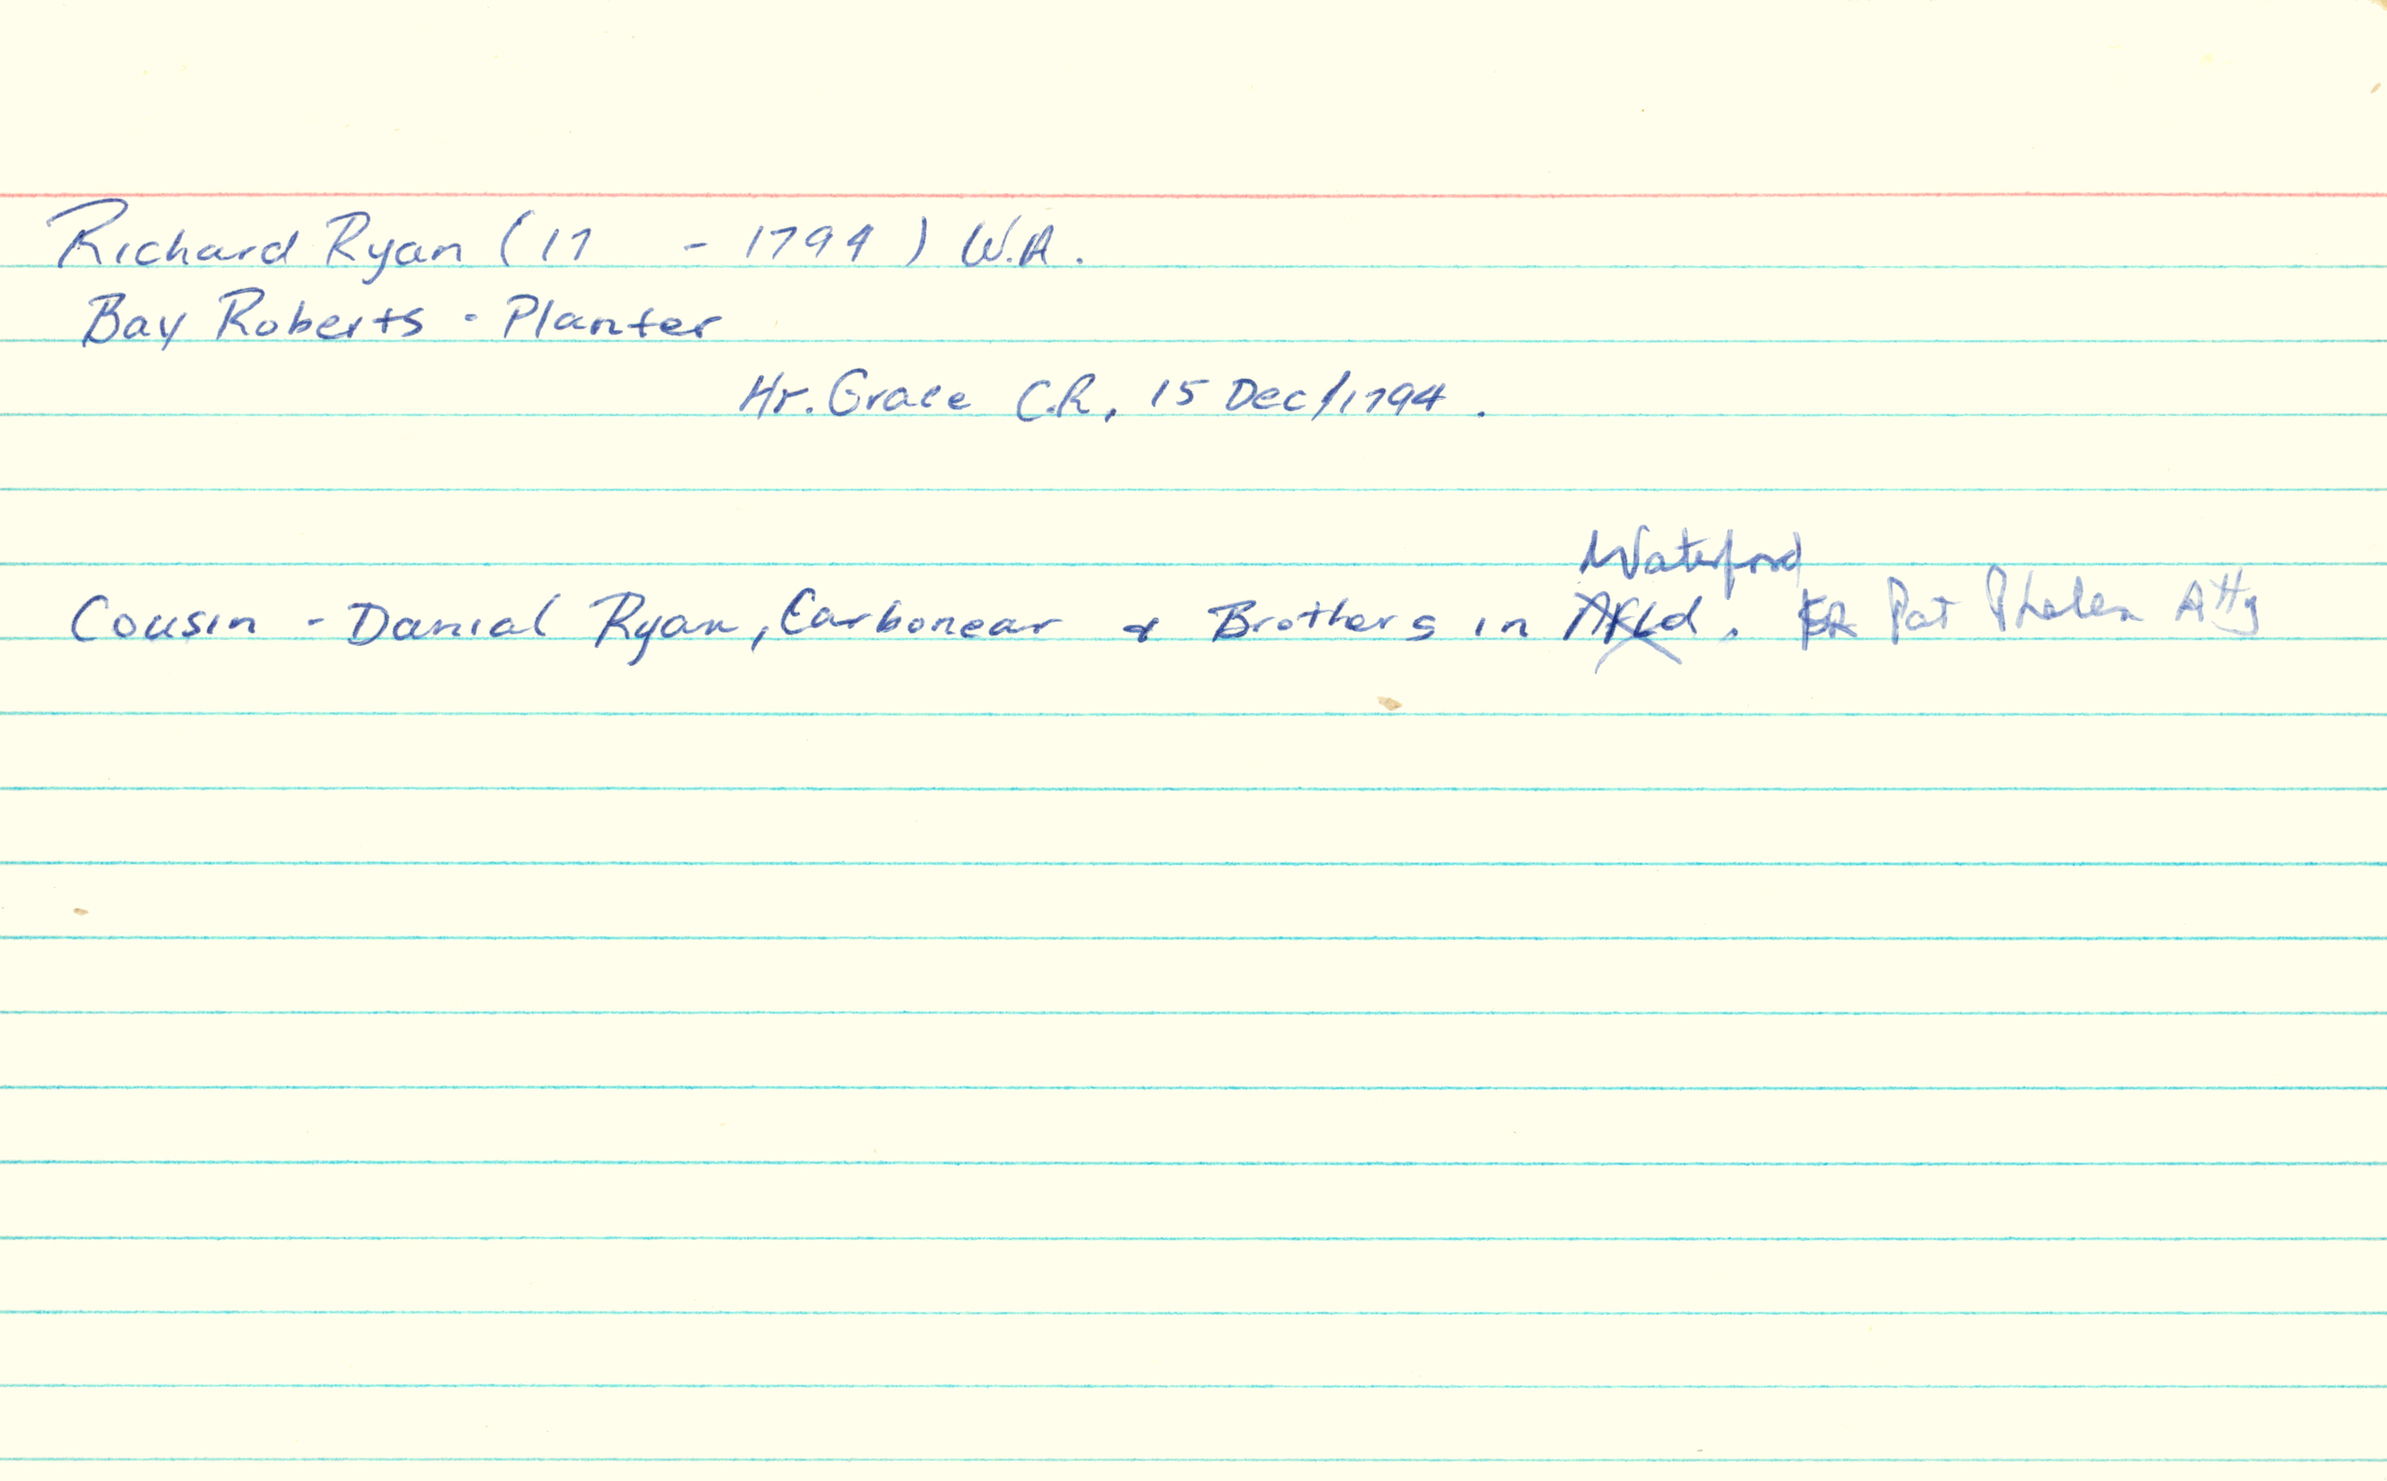 Richard Ryan (17 - 1794) W.A.
Bay Roberts - Planter
Hr. Grace C.R, 15 Dec/1794.
Waterford
Cousin - Danial Ryan, Carbonear & Brothers in Nfld. Pat Phelan Atty